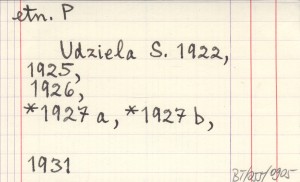 etn. P
Udziela S. 1922,
1925,
1926,
*1927a, *1927b,
1931
BJ/057/0905